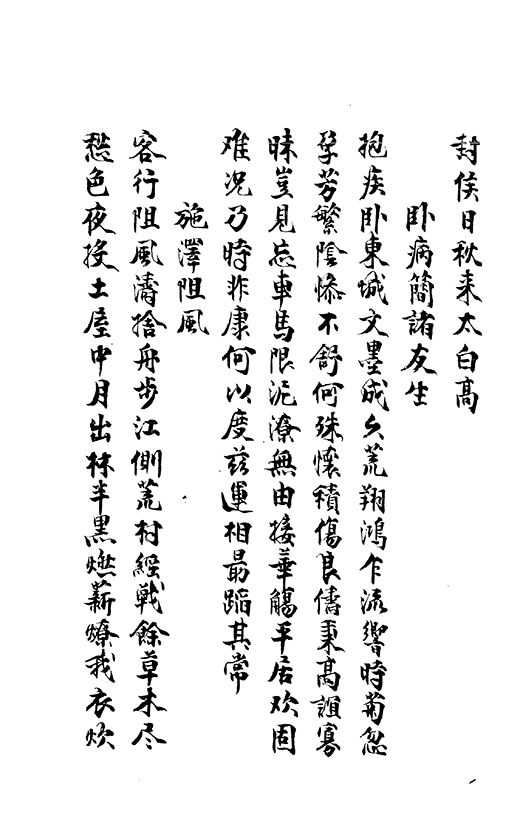 封侯日秋来太白高
卧病簡諸友生
抱疾卧東城文墨成久荒翔鴻乍流響時菊忽
孕芳繁陰慘不舒何殊懷積傷良儔秉高誼寡
昧豈見忘車馬限泥潦無由接華觴平居欢固
难况乃時非康何以度兹運相最蹈其常
施澤阻風
客行阻風濤捨舟步江側荒村經戰餘草木尽
愁色夜投土屋中月出林半黑燃薪燎我衣炊